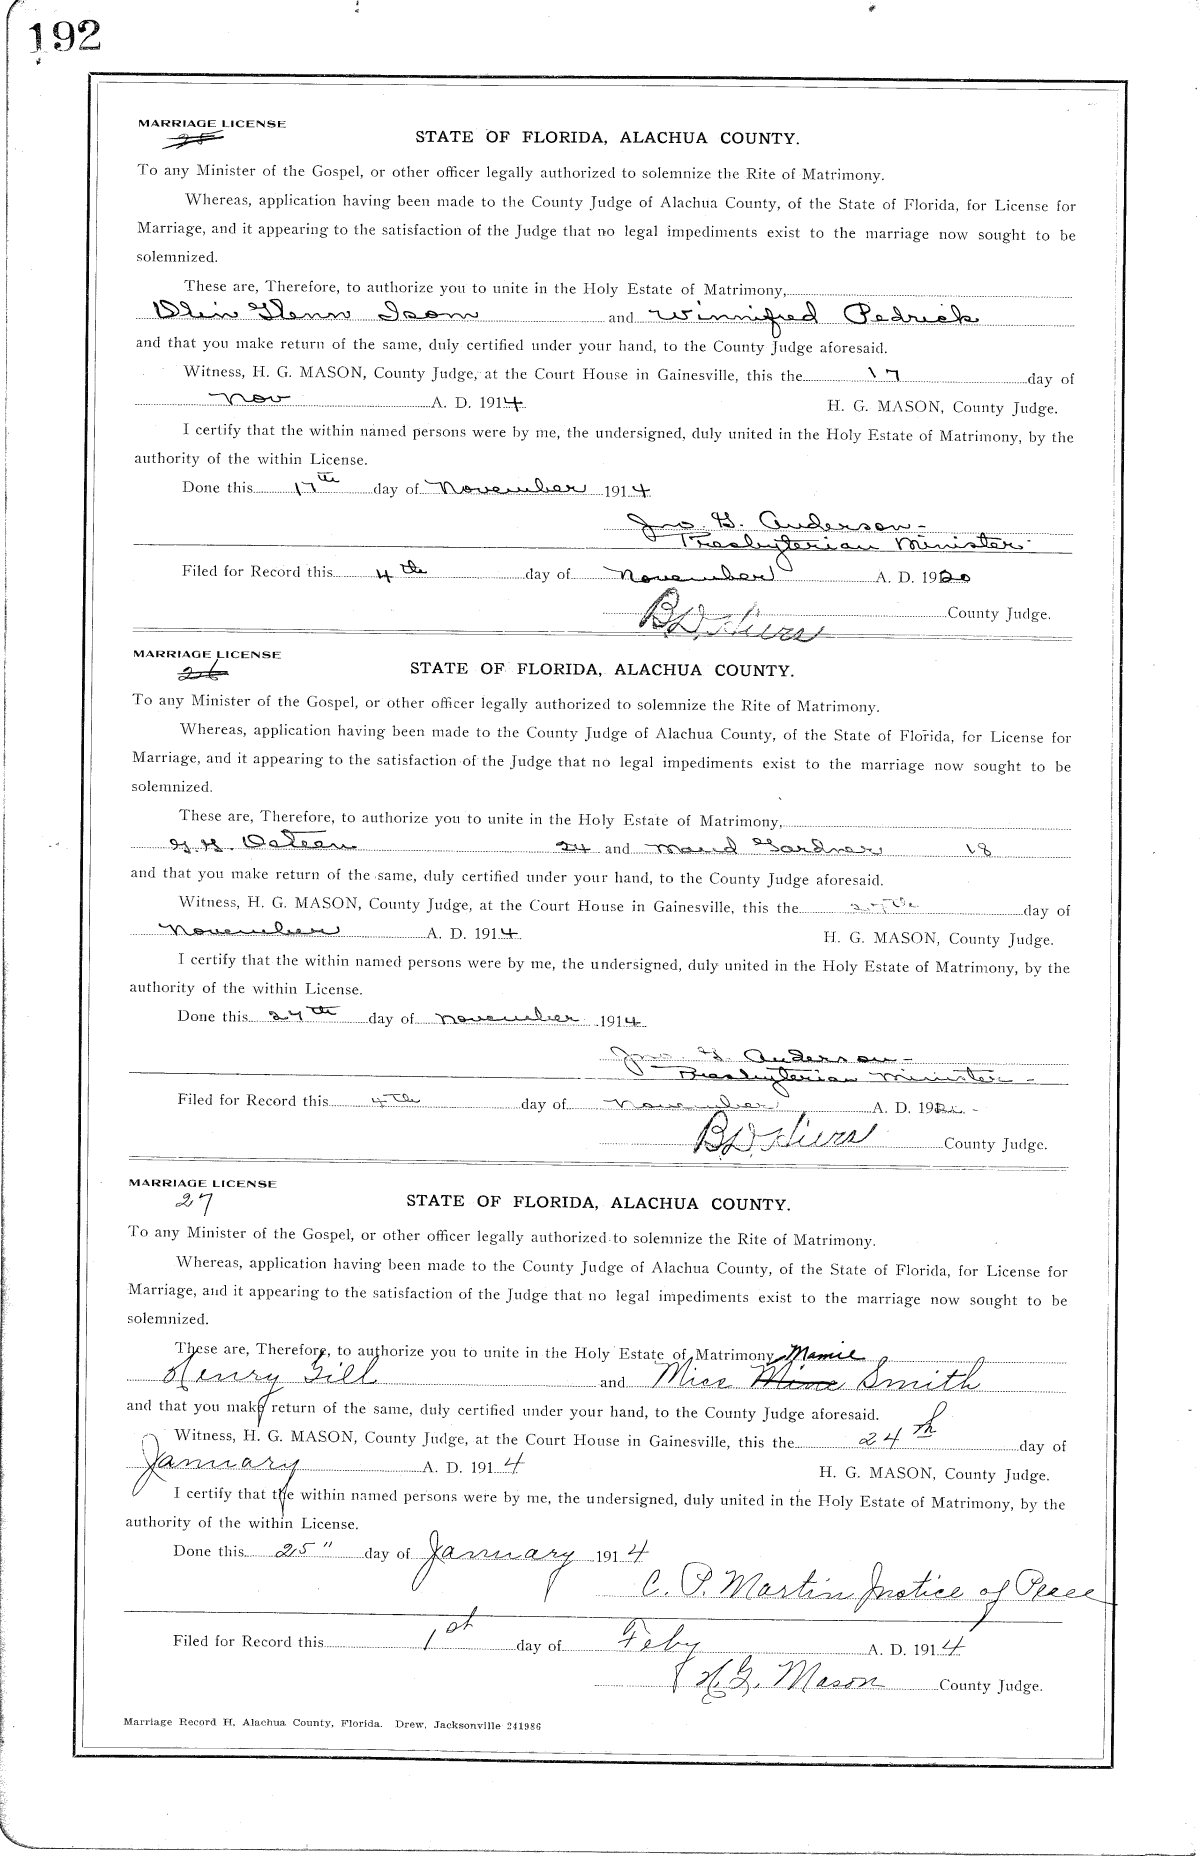 192
MARRIAGE LICENSE
25
STATE OF FLORIDA, ALACHUA COUNTY.
To any Minister of the Gospel, or other officer legally authorized to solemnize the Rite of Matrimony.
Whereas, application having been made to the County Judge of Alachua County, of the State of Florida, for License for
Marriage, and it appearing to the satisfaction of the Judge that no legal impediments exist to the marriage now sought to be
solemnized.
These are, Therefore, to authorize you to unite in the Holy Estate of Matrimony,
Olein Glenn Isom and Winnifred Pedrick
and that you make return of the same, duly certified under your hand, to the County Judge aforesaid.
Witness, H. G. MASON, County Judge, at the Court House in Gainesville, this the 17 day of
Nov A. D. 1914 H. G. MASON, County Judge.
I certify that the within named persons were by me, the undersigned, duly united in the Holy Estate of Matrimony, by the
authority of the within License.
Done this 17th day of November 1914
Jno. G. Anderson-
Presbyterian Minister-
Filed for Record this 4th day of November A. D. 1920
B.D. Hiers County Judge.
MARRIAGE LICENSE
26
STATE OF FLORIDA, ALACHUA COUNTY.
To any Minister of the Gospel, or other officer legally authorized to solemnize the Rite of Matrimony.
Whereas, application having been made to the County Judge of Alachua County, of the State of Florida, for License for
Marriage, and it appearing to the satisfaction of the Judge that no legal impediments exist to the marriage now sought to be
solemnized.
These are, Therefore, to authorize you to unite in the Holy Estate of Matrimony,
G. G. Osteen 24 and Maud Gardner 18
and that you make return of the same, duly certified under your hand, to the County Judge aforesaid.
Witness, H. G. MASON, County Judge, at the Court House in Gainesville, this the 27th day of
November A. D. 1914 H. G. MASON, County Judge.
I certify that the within named persons were by me, the undersigned, duly united in the Holy Estate of Matrimony, by the
authority of the within License.
Done this 27th day of November 1914
Jno. G. Anderson-
Presbyterian Minister-
Filed for Record this 4th day of November A. D. 1920-
B.D. Hiers County Judge.
MARRIAGE LICENSE
27
STATE OF FLORIDA, ALACHUA COUNTY.
To any Minister of the Gospel, or other officer legally authorized to solemnize the Rite of Matrimony.
Whereas, application having been made to the County Judge of Alachua County, of the State of Florida, for License for
Marriage, and it appearing to the satisfaction of the Judge that no legal impediments exist to the marriage now sought to be
solemnized.
These are, Therefore, to authorize you to unite in the Holy Estate of Matrimony, Mamie
Henry Gill and Miss Smith
and that you make return of the same, duly certified under your hand, to the County Judge aforesaid.
Witness, H. G. MASON, County Judge, at the Court House in Gainesville, this the 24th day of
January A. D. 1914 H. G. MASON, County Judge.
I certify that the within named persons were by me, the undersigned, duly united in the Holy Estate of Matrimony, by the
authority of the within License.
Done this 25" day of January 1914
C. P. Martin Justice of Peace
Filed for Record this 1st day of Feby A. D. 1914
H.G. Mason County Judge.
Marriage Record H, Alachua County, Florida. Drew, Jacksonville 241986